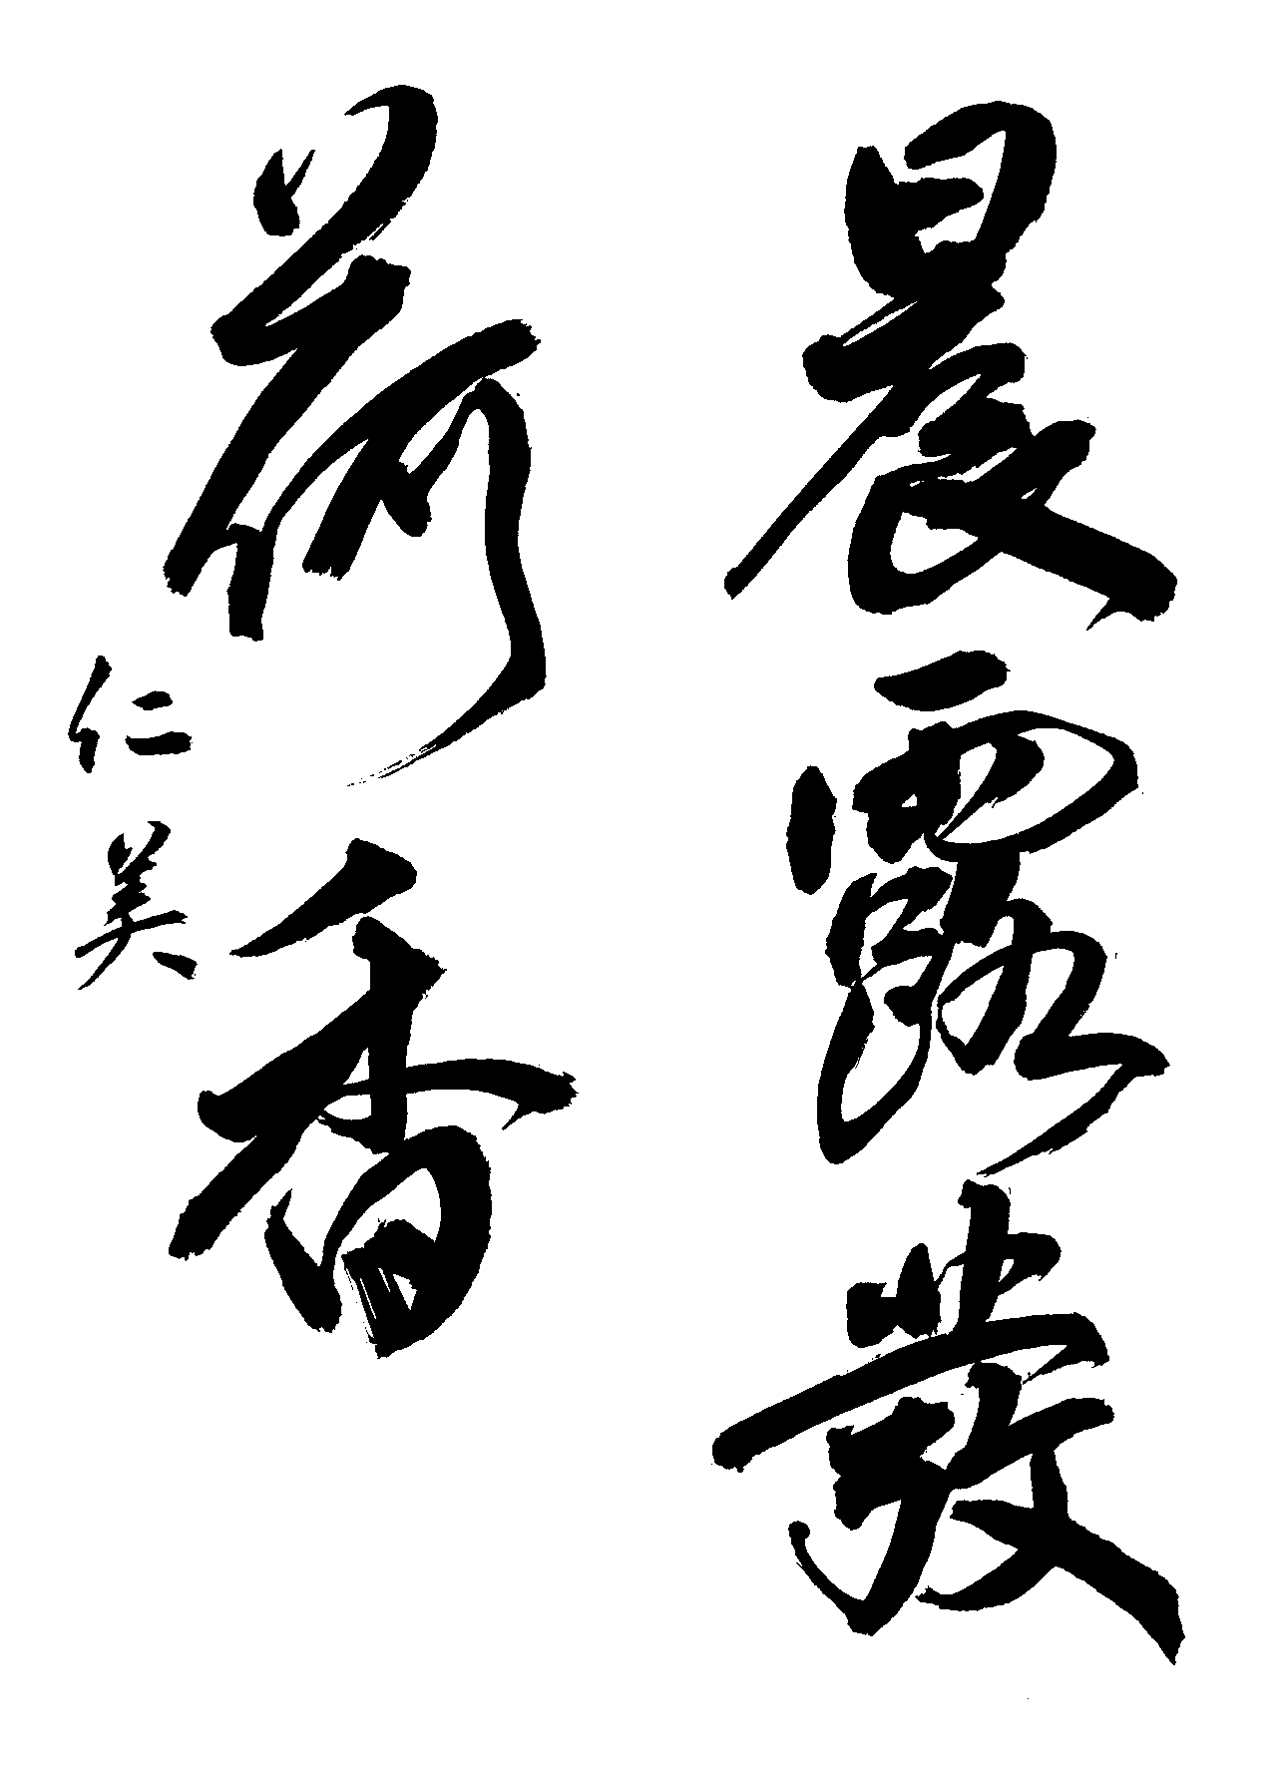 晨露發
荷香
仁美